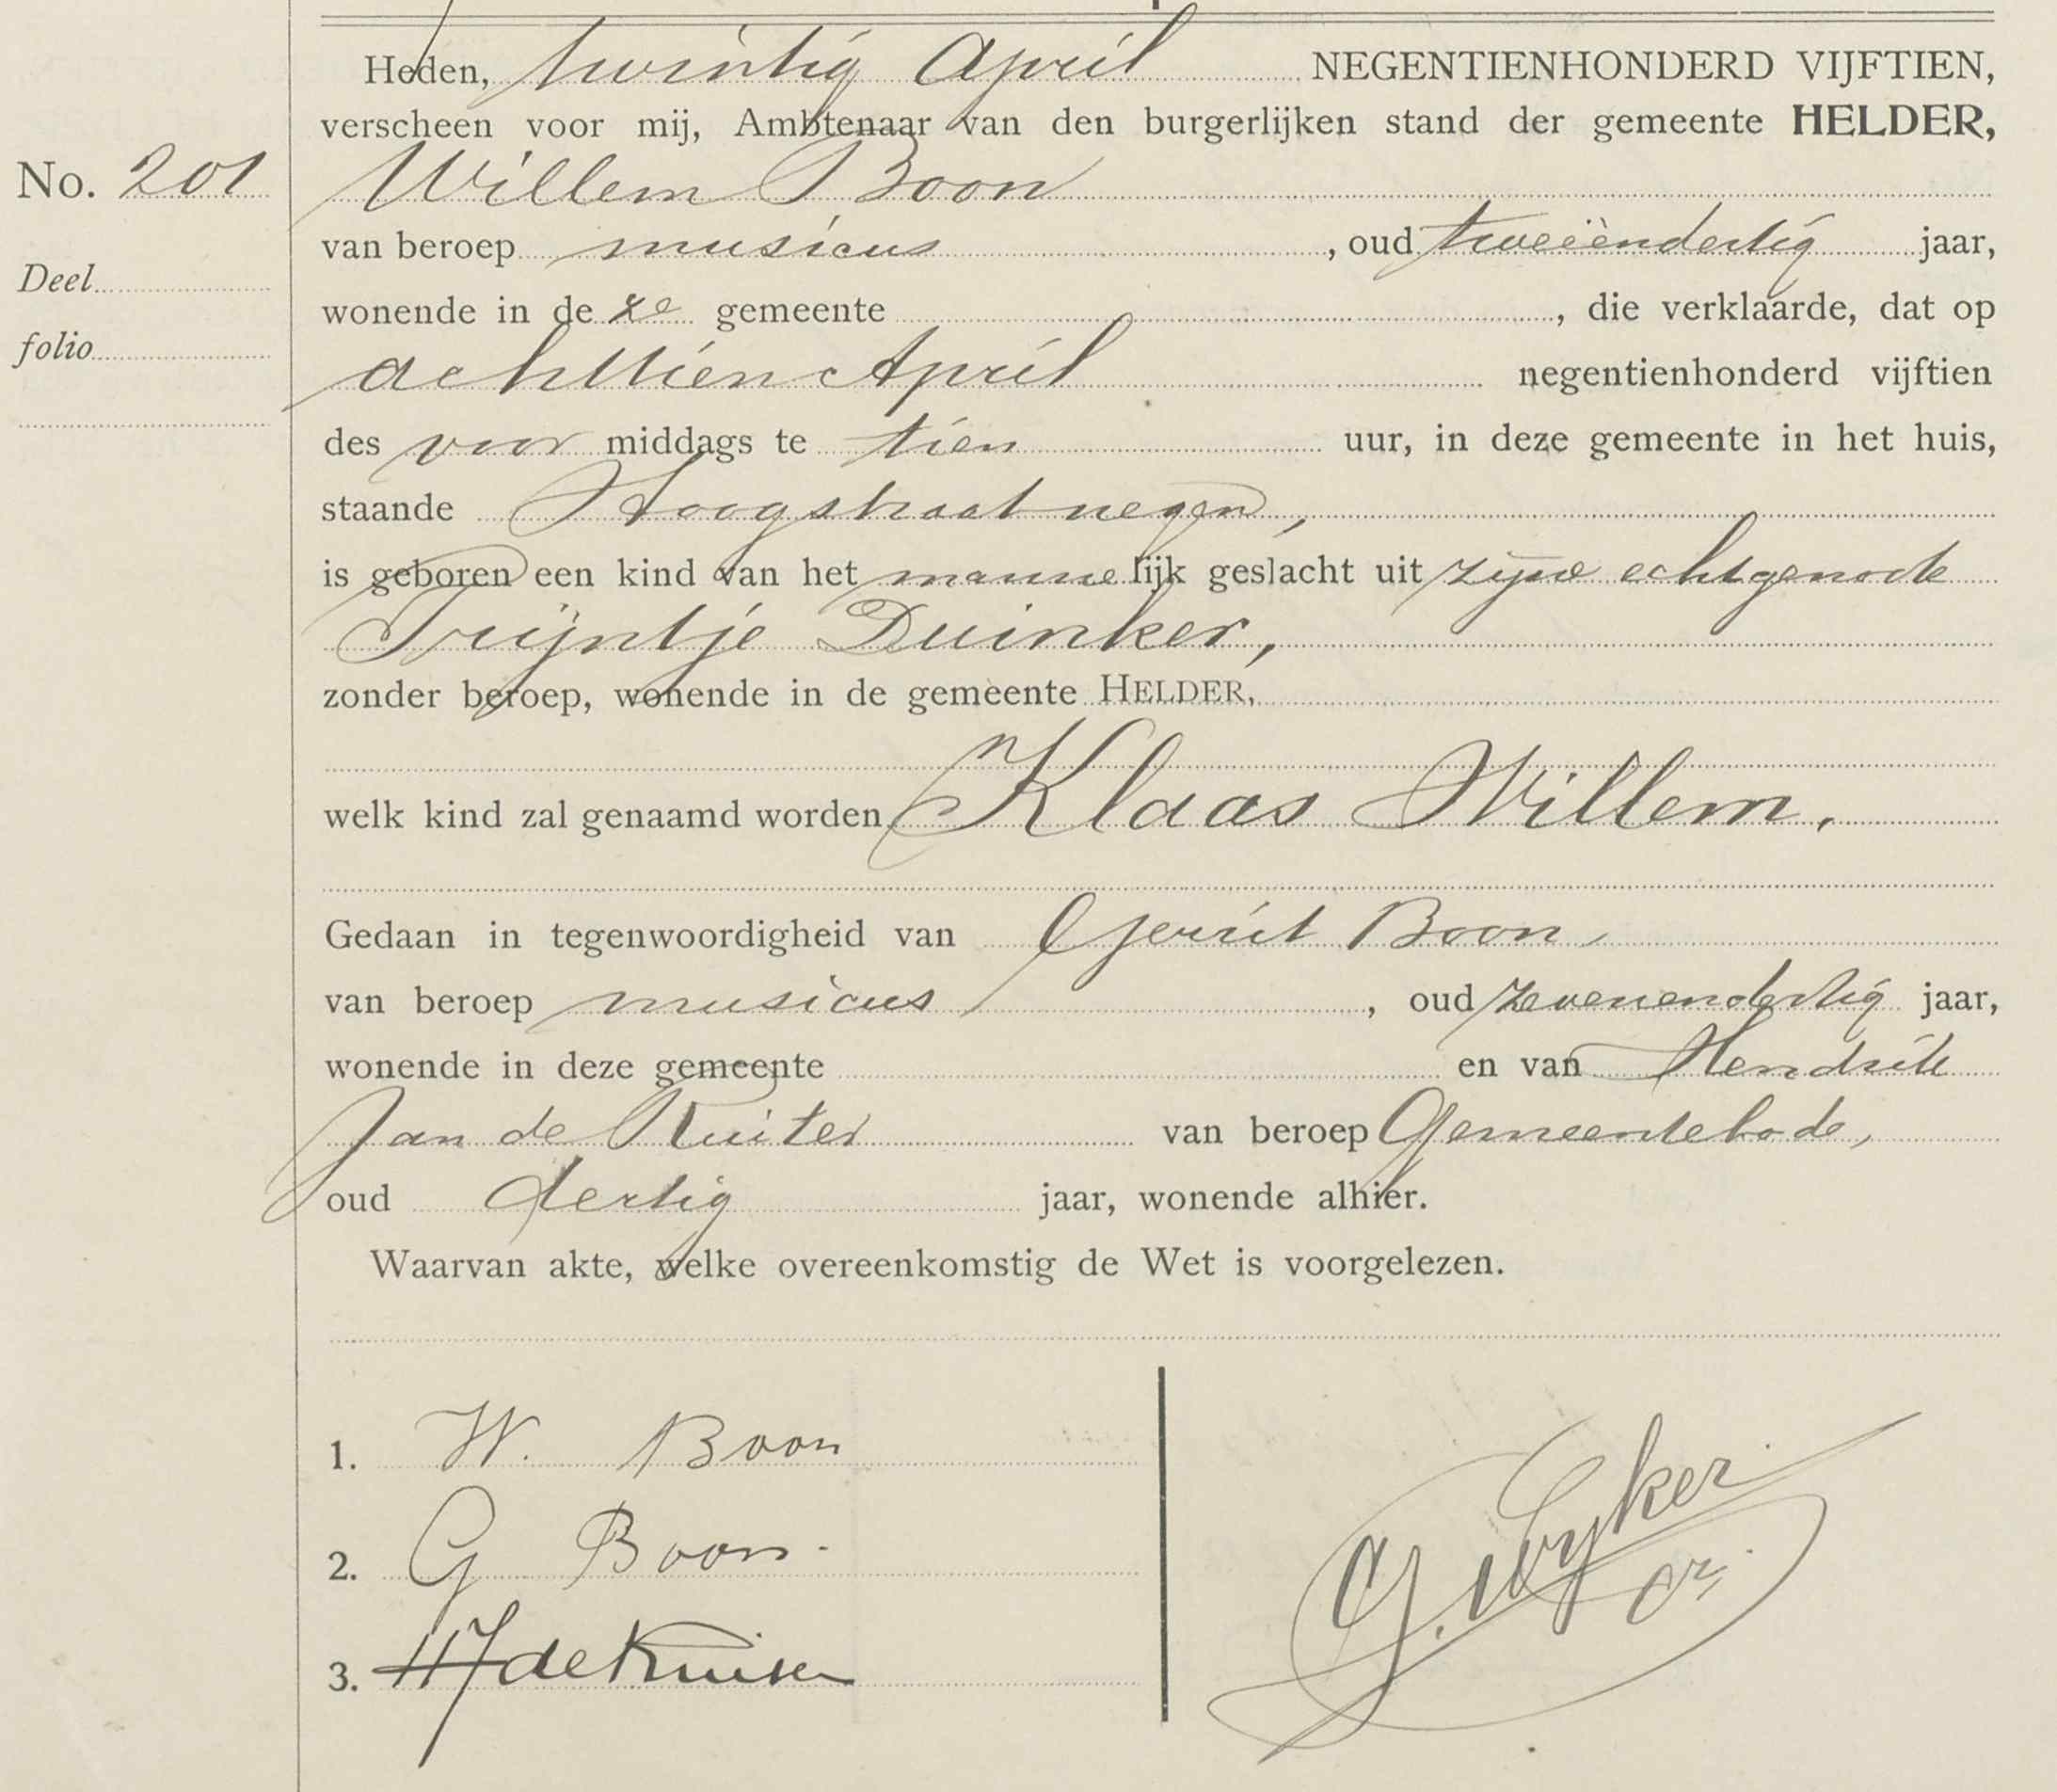 Heden, twintig April NEGENTIENHONDERD VIJFTIEN,
verscheen voor mij, Ambtenaar van den burgerlijken stand der gemeente HELDER,
No. 201 Willem Boon
van beroep musicus, oud tweeëndertig jaar,
Deel
wonende in de ze gemeente, die verklaarde, dat op
folio
achttien April negentienhonderd vijftien
des voor middags te tien uur, in deze gemeente in het huis,
staande Hoogstraat negen,
is geboren een kind van het manne lijk geslacht uit zijne echtgenoote
Trijntje Duinker,
zonder beroep, wonende in de gemeente HELDER,
welk kind zal genaamd worden Klaas Willem.
Gedaan in tegenwoordigheid van Gerrit Boon,
van beroep musicus, oud zevenendertig jaar,
wonende in deze gemeente en van Hendrik
Jan de Ruiter van beroep Gemeentebode,
oud dertig jaar, wonende alhier.
Waarvan akte, welke overeenkomstig de Wet is voorgelezen.
1. W. Boon
2. G Boon.
3. HJ de Ruiter